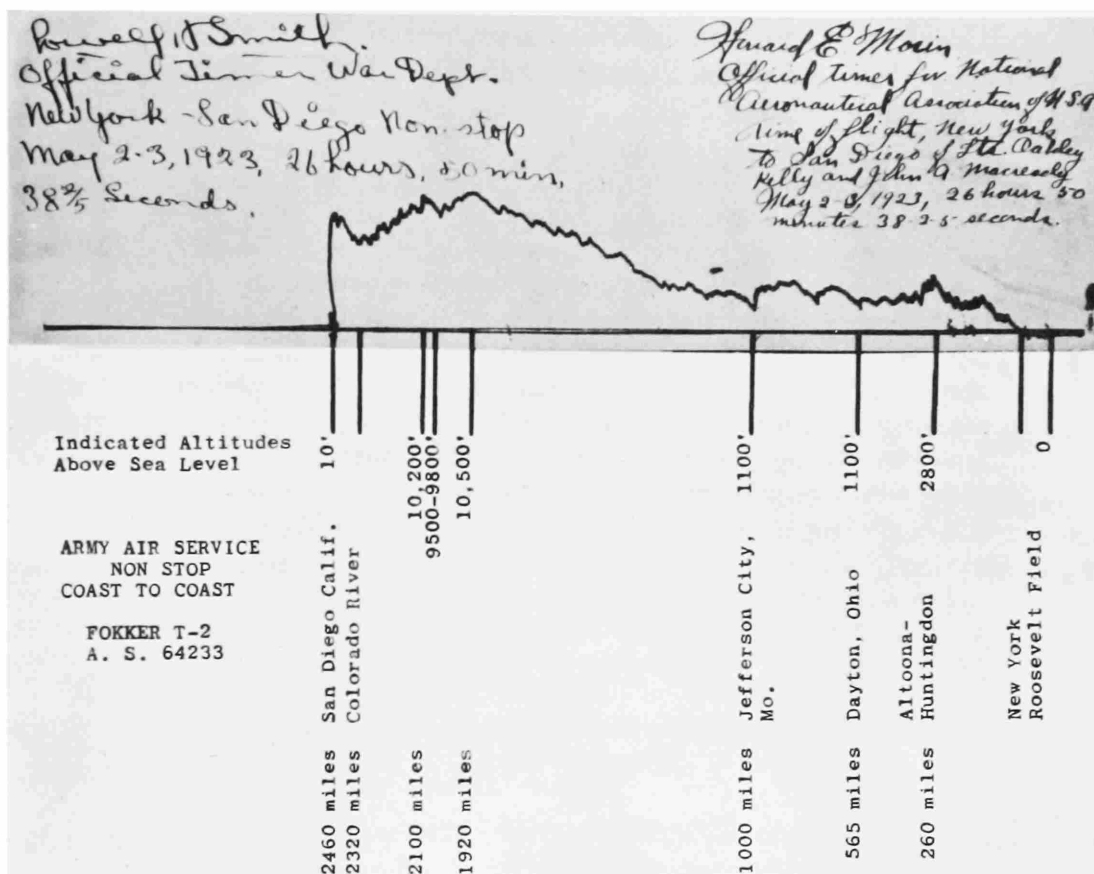 Lowell H Smith.
Official Timer War Dept.
New York - San Diego Non-stop
May 2-3, 1923, 26 hours, 50 min,
38 2/5 Seconds.
E
Official timer for National
Aeronautical Association of U S A
time of flight, New York
to San Diego of Lts. Oakley
Kelly and John A Macready
May 2-3, 1923, 26 hours 50
minutes 38 2-5 seconds.
Indicated Altitudes
Above Sea Level
10'
10,200'
9500-9800'
10,500'
1100'
1100'
2800'
0
ARMY AIR SERVICE
NON STOP
COAST TO COAST
FOKKER T-2
A. S. 64233
San Diego Calif.
Colorado River
Jefferson City,
Mo.
Dayton, Ohio
Altoona-
Huntingdon
New York
Roosevelt Field
2460 miles
2320 miles
2100 miles
1920 miles
1000 miles
565 miles
260 miles